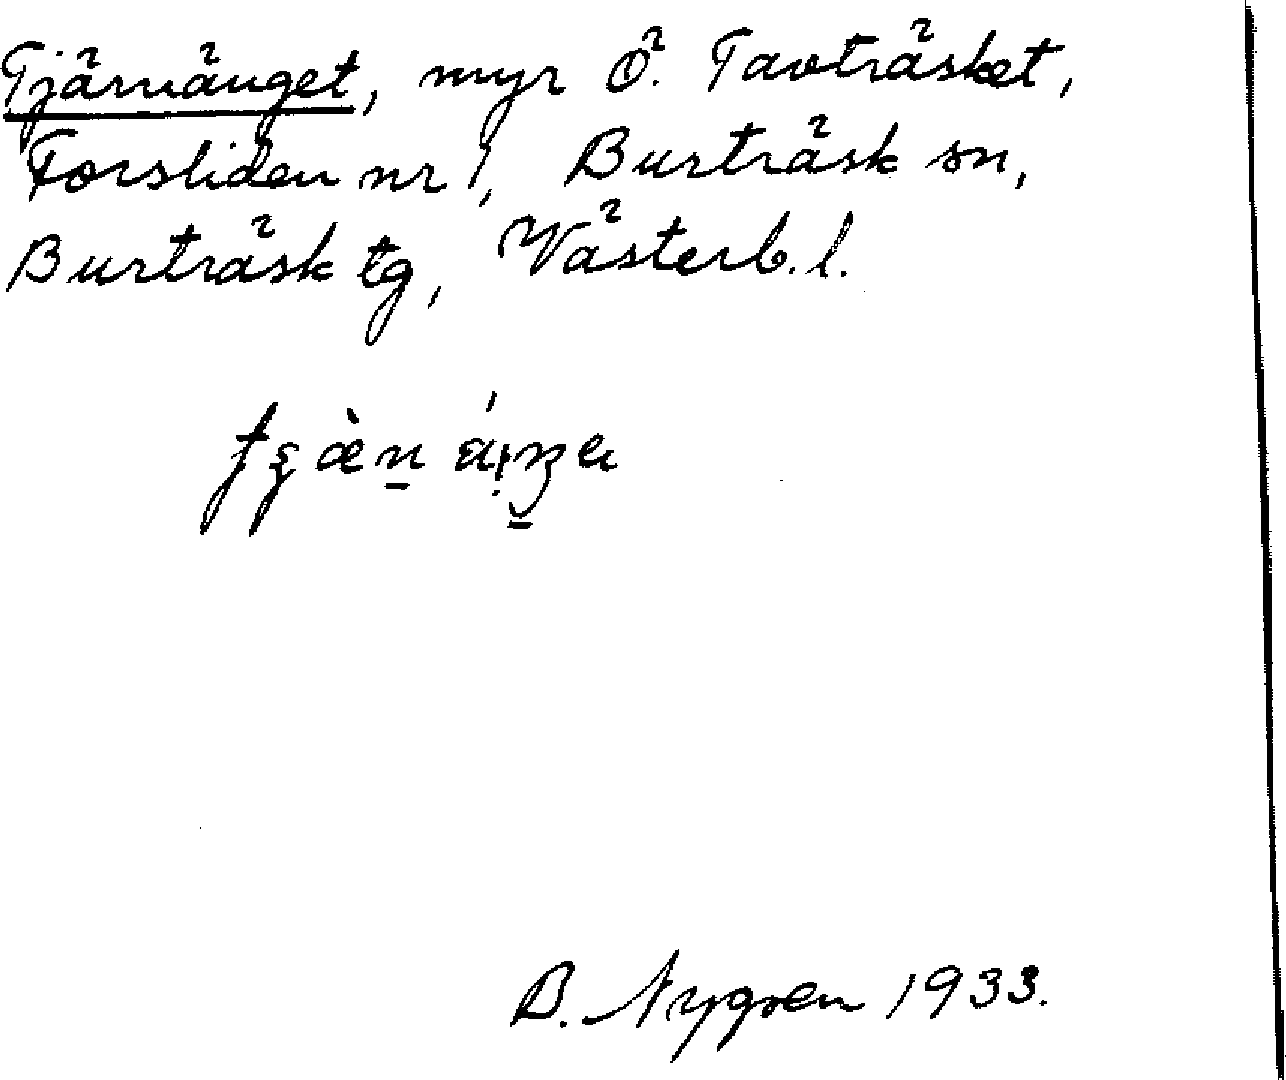 Tjärnänget, myr Ö. Tavträsket,
Forsliden nr 1, Burträsk sn,
Burträsk tg, Västerb. l.
B. Nygren 1933.